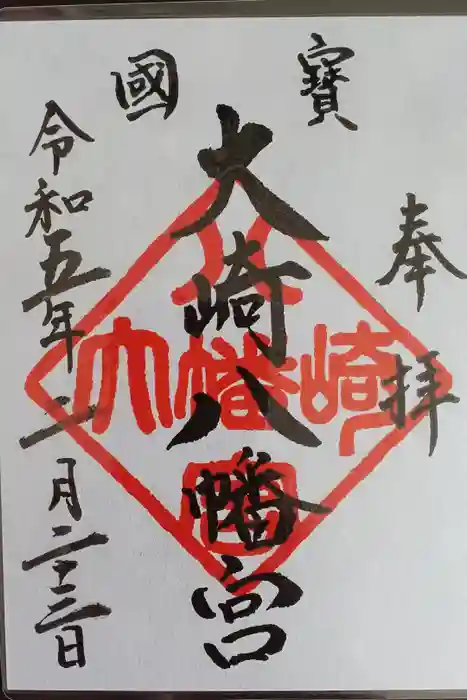 寶國
奉拝
大崎八幡宮
令和五年二月二十三日
八
大幡崎
宮